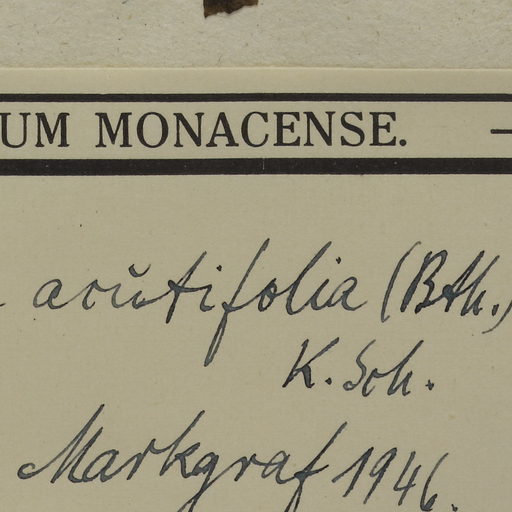 UM MONACENSE. —
acutifolia (Bth.)
K. Sch.
Markgraf 1946.